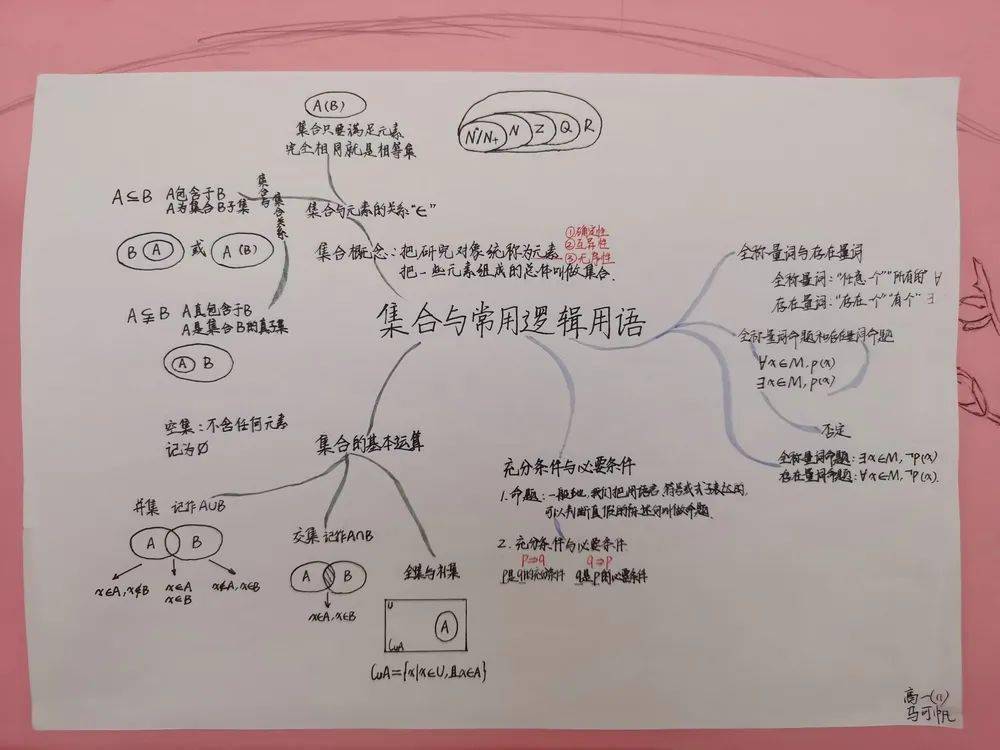 A(B)
集合只要满足元素
完全相同就是相等集
N*/N+ N Z Q R
集合与
集合关系
A⊆B A包含于B
A为集合B子集
B A 或 A(B)
A⫋B A真包含于B
A是集合B的真子集
A B
空集：不含任何元素
记为∅
集合与元素的关系“∈”
集合概念：把研究对象统称为元素
把一些元素组成的总体叫做集合.
①确定性
②互异性
③无序性
集合与常用逻辑用语
集合的基本运算
并集 记作A∪B
A B
x∈A, x∉B
x∈A
x∈B
x∉A, x∈B
交集 记作A∩B
A B
x∈A, x∈B
全集与补集
U
A
∁UA
∁UA={x|x∈U,且x∈A}
充分条件与必要条件
1. 命题：一般地,我们把用语言、符号或式子表达的,
可以判断真假的陈述句叫做命题.
2. 充分条件与必要条件
p⇒q q⇒p
p是q的充分条件 q是p的必要条件
全称量词与存在量词
全称量词：“任意一个”“所有的” ∀
存在量词：“存在一个”“有个” ∃
全称量词命题和存在量词命题
∀x∈M, p(x)
∃x∈M, p(x)
否定
全称量词命题：∃x∈M, ¬p(x)
存在量词命题：∀x∈M, ¬p(x).
高一(11)
马可帆